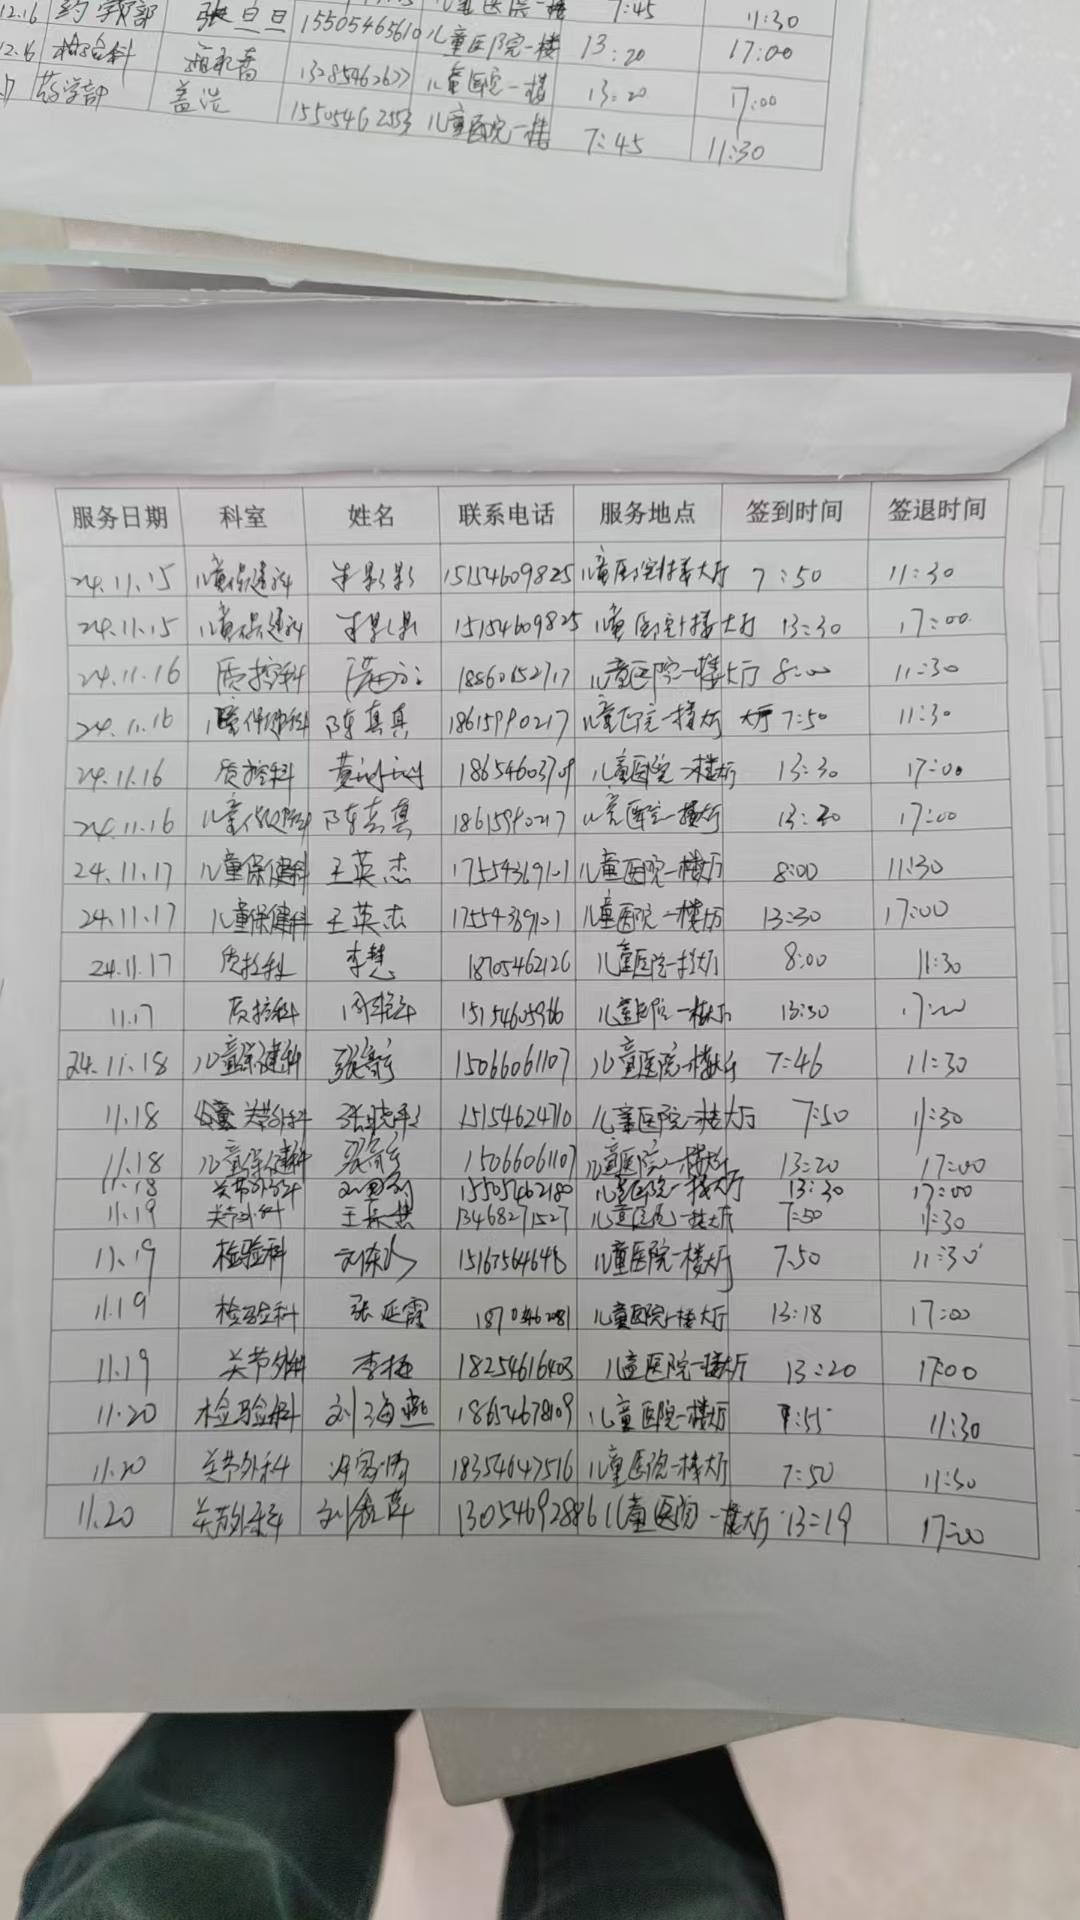 12.16 药学部 张旦旦 15505465610 儿童医院一楼 7:45 11:30
12.16 13285462677 儿童医院一楼 13:20 17:00
药学部 盖浩 15505462553 儿童医院一楼 13:20 17:00
7:45 11:30
服务日期 科室 姓名 联系电话 服务地点 签到时间 签退时间
24.11.15 儿童保健科 15154609825 儿童医院1楼大厅 7:50 11:30
24.11.15 儿童保健科 15154609825 儿童医院1楼大厅 13:30 17:00
24.11.16 质控科 18860152717 儿童医院一楼大厅 8:00 11:30
24.11.16 儿童保健科 陈真真 18615990217 儿童医院一楼大厅 大厅 7:50 11:30
24.11.16 质控科 18654603709 儿童医院一楼大厅 13:30 17:00
24.11.16 儿童保健科 陈真真 18615990217 儿童医院一楼大厅 13:30 17:00
24.11.17 儿童保健科 王英杰 17554369101 儿童医院一楼大厅 8:00 11:30
24.11.17 儿童保健科 王英杰 17554369101 儿童医院一楼大厅 13:30 17:00
24.11.17 质控科 李慧 18705462126 儿童医院一楼大厅 8:00 11:30
11.17 质控科 15154605966 儿童医院一楼大厅 13:30 17:00
24.11.18 儿童保健科 15066061107 儿童医院一楼大厅 7:46 11:30
11.18 关节外科 15154624710 儿童医院一楼大厅 7:50 11:30
11.18 儿童保健科 15066061107 儿童医院一楼大厅 13:20 17:00
11.18 关节外科 15505462180 儿童医院一楼大厅 13:30 17:00
11.19 关节外科 13468271527 儿童医院一楼大厅 7:50 11:30
11.19 检验科 15167564648 儿童医院一楼大厅 7:50 11:30
11.19 检验科 张延霞 儿童医院一楼大厅 13:18 17:00
11.19 关节外科 李梅 18254616403 儿童医院一楼大厅 13:20 17:00
11.20 检验科 刘海燕 18654678109 儿童医院一楼大厅 7:55 11:30
11.20 关节外科 18354647516 儿童医院一楼大厅 7:50 11:30
11.20 关节外科 13054692886 儿童医院一楼大厅 13:19 17:00